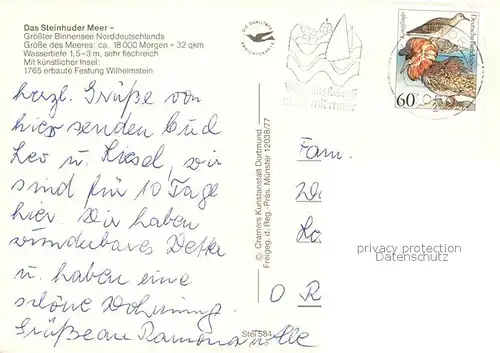 Das Steinhuder Meer –
Größter Binnensee Norddeutschlands
Größe des Meeres: ca. 18 000 Morgen = 32 qkm
Wassertiefe 1,5–3 m, sehr fischreich
Mit künstlicher Insel:
1765 erbaute Festung Wilhelmstein
herzl. Grüße von
hier senden Euch
Leo u. Liesel, wir
sind für 10 Tage
hier. Wir haben
wunderbares Wetter
u. haben eine
schöne Wohnung.
Grüße an Ramona u. Alle
Ste 584
© Cramers Kunstanstalt Dortmund
Freigeg. d. Reg.-Präs. Münster 12038/77
DIE QUALITÄTS
mit mehr
Deutsche Bundespost
60
Fam.
O R
privacy protection
Datenschutz